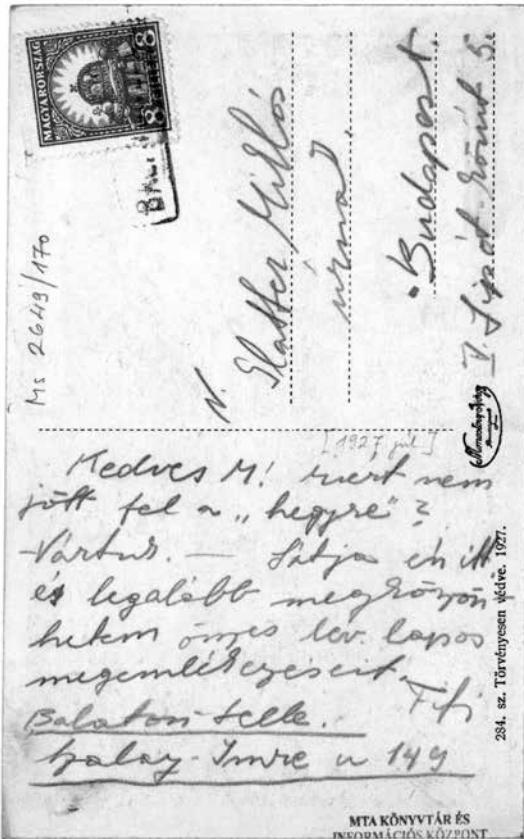 MAGYARORSZÁG
8 8
Ms 2649/170
N.
Glatter Miklós
úrnak
Budapest.
V. Lipót-körút 5.
[1927. júl.]
Kedves M! miért nem
jött fel a „hegyre"?
Vártuk. — Látja én itt
és legalább megköszön
hetem önnek lev. lapos
megemlékezéseit.
Fifi
Balaton-Lelle.
Szalay-Imre u 149
284. sz. Törvényesen védve. 1927.
MTA KÖNYVTÁR ÉS
INFORMÁCIÓS KÖZPONT